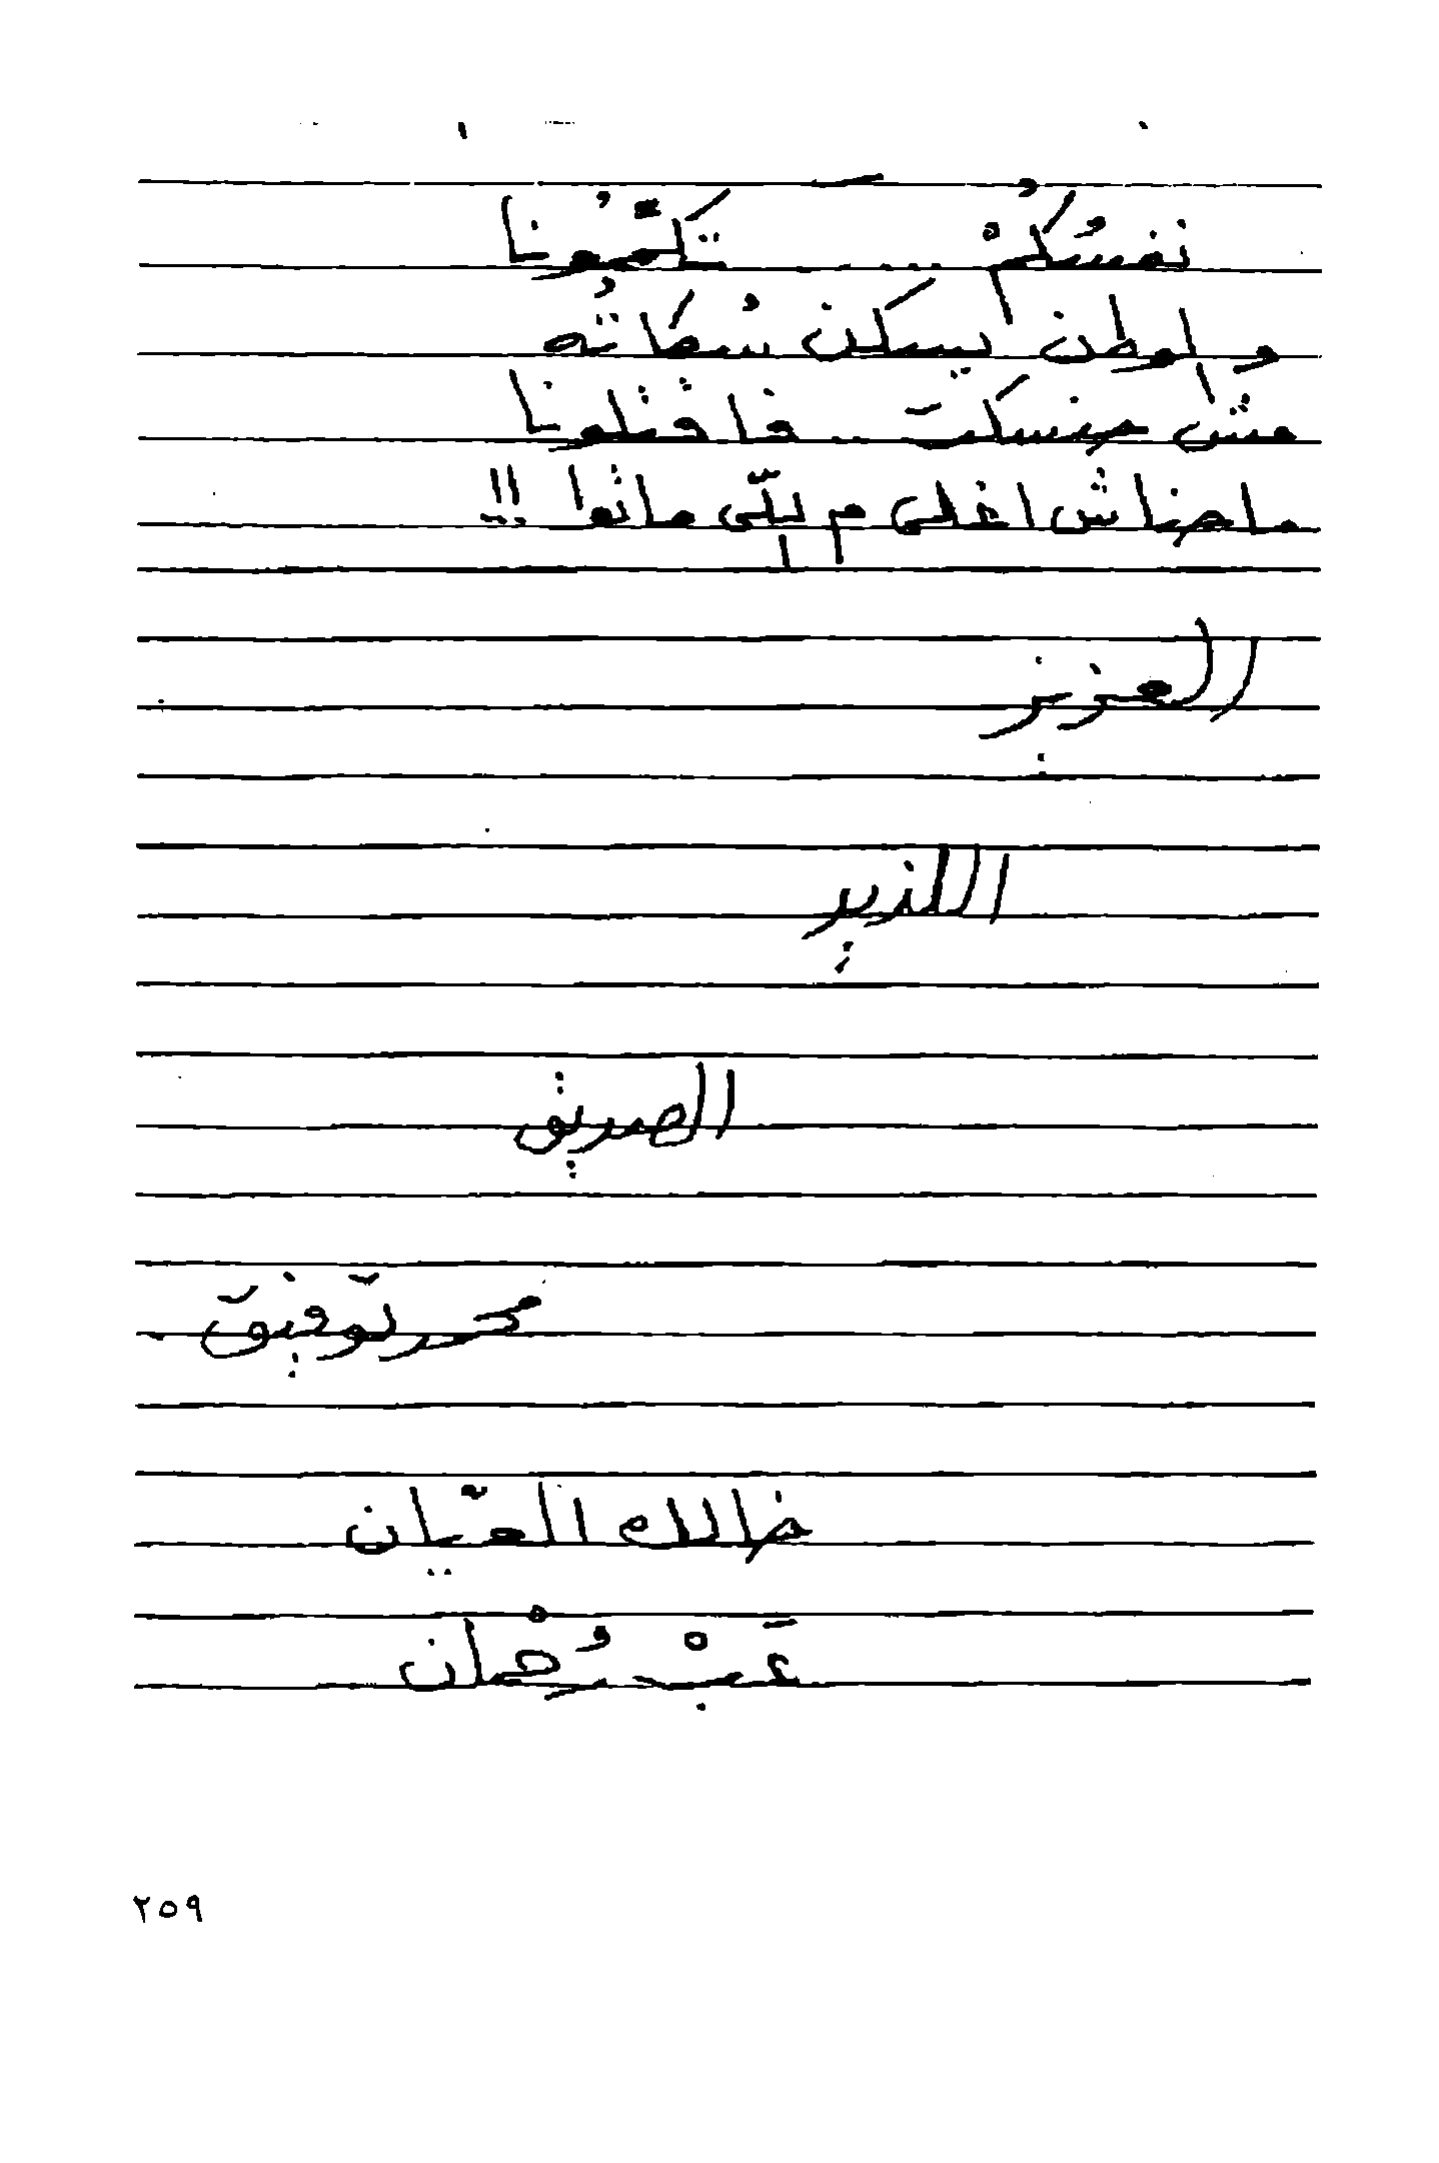 نفسُكُمْ ... تكمِّمُونا
والوطن ليسكن سُكاتُه
مش حنسكتَ .. فاقتلونا
ماحناش اغلى م لِلّى ماتوا !!
العزيز
اللذيذ
الصديق
محمد توفيق
خالك العيّان
عَبْ رُحْمان
٢٥٩